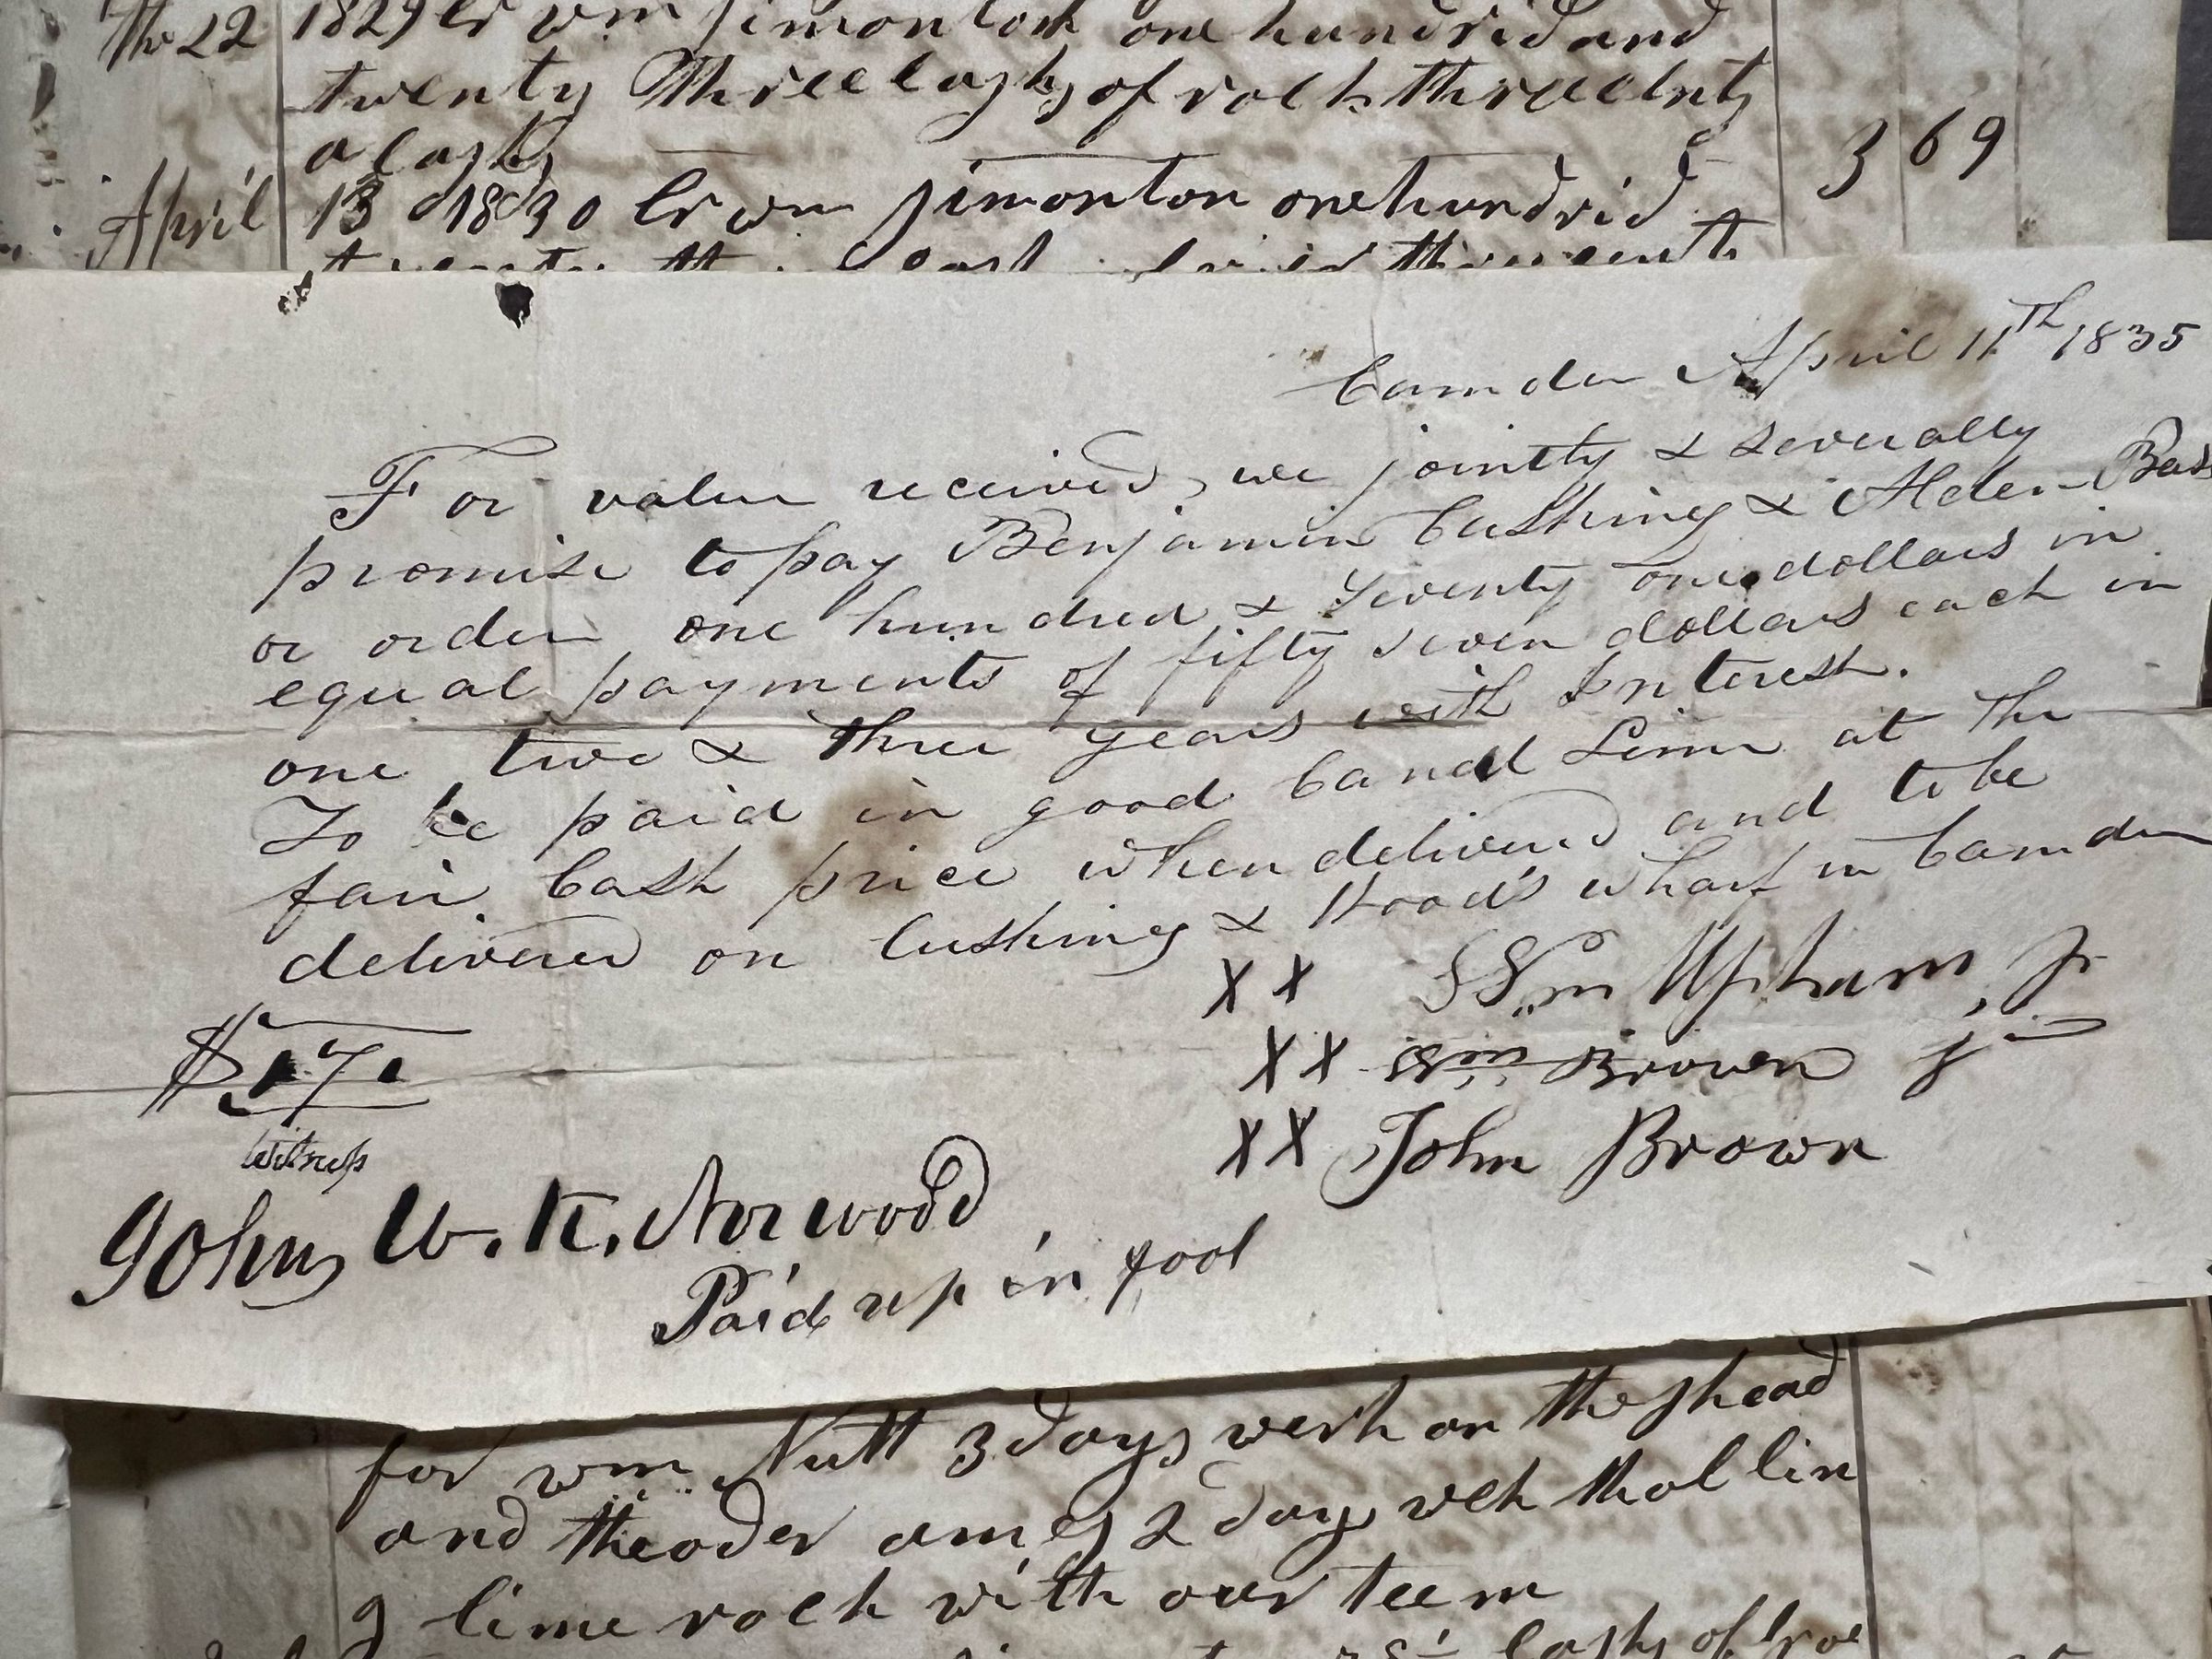 the 22 1829 Cr wm Simonton one hundrid and
twenty three casks of rock three cents
a cask
3 69
April 13 1830 Cr wm Simonton one hundrid
Camden April 11th 1835
For value received, we jointly & severally
promise to pay Benjamin Cushing & Alden Bass
or order one hundred & Seventy one dollars in
equal payments of fifty seven dollars each in
one two & three years with Interest.
To be paid in good Lime at the
fair Cash price when delivered and to be
delivered on Cushing & Hood's wharf in Camden
X X Wm Upham, Jr
X X Wm Brown Jun
X X John Brown
$171
Witness
John W. K. Norwood
Paid up in
for wm Nutt 3 days werk on the shead
and theoder ames 2 days wek
g lime rock with our teem
casks of